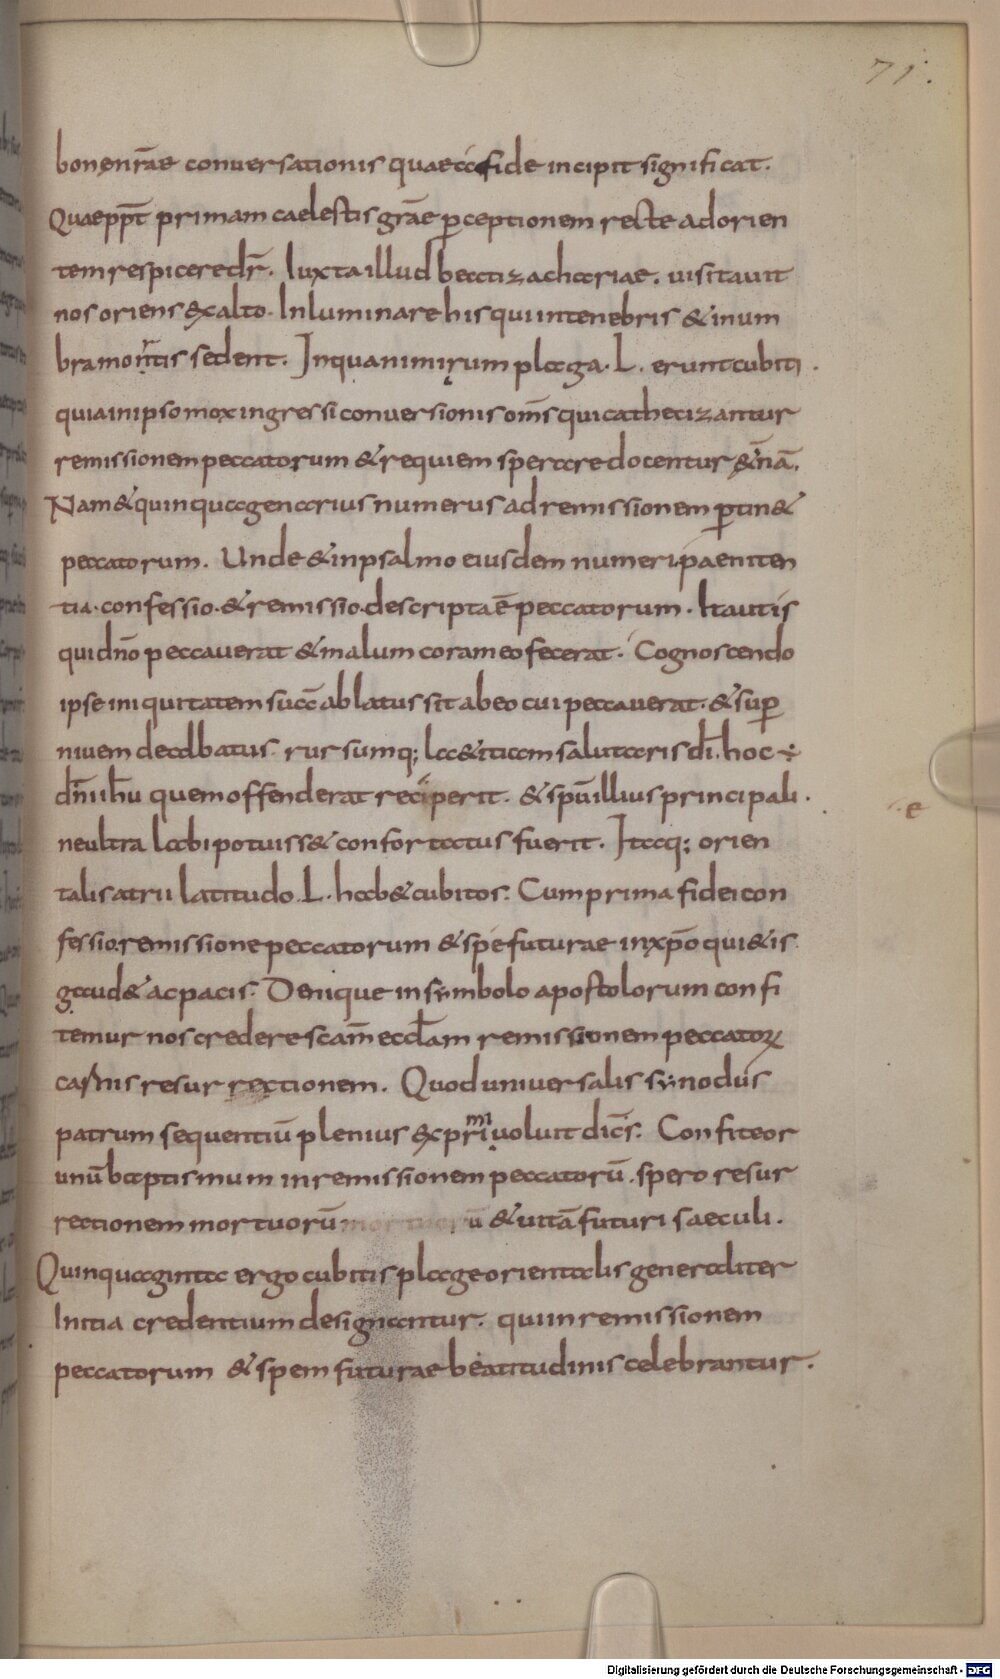 71.
bonęnr̄ae conversationis quae a fide incipit significat.
Quaeppt̄ primam caelestis grāe p̄ceptionem recte adorien
tem respicere dr̄. Iuxta illud beati zachariae. visitavit
nos oriens ex alto. Inluminare his qui in tenebris & in um
bra mortis sedent. In qua nimirum plaga. L. erunt cubiti.
quia in ipso mox ingressi conversionis om̄s qui cathecizantur
remissionem peccatorum & requiem sperare docentur &̄nā.
Nam & quinquagenarius numerus ad remissionem p̄tin&
peccatorum. Unde & in psalmo eiusdem numeri paeniten
tia. confessio. & remissio. descripta ē peccatorum. Ita ut is
qui dn̄o peccaverat & malum coram eo fecerat. Cognoscendo
ipse iniquitatem suā ablatus sit ab eo cui peccaverat. & sup̄
nivem dealbatus. rursumq; la&itiam salutaris dī. hoc ÷
dn̄i ih̄u quem offenderat reciperit. & spū illius principali.
ne ultra labi potuiss& confortatus fuerit. Itaq; orien
talis atrii latitudo. L. hab& cubitos. Cum prima fidei con
fessio. remissione peccatorum & spe futurae in xp̄o qui&is
gaud& ac pacis. Denique in symbolo apostolorum confi
temur nos credere scām eccl̄am remissionem peccatoꝝ
carnis resurrectionem. Quod universalis synodus
patrum sequentiū plenius exprimi voluit dic̄s. Confiteor
unū baptismum in remissionem peccatorū. spero resur
rectionem mortuorū mortuorū & vitā futuri saeculi.
Quinquaginta ergo cubitis plage orientalis generaliter
Initia credentium designantur. qui in remissionem
peccatorum & spem futurae beatitudinis celebrantur.
e
Digitalisierung gefördert durch die Deutsche Forschungsgemeinschaft - DFG